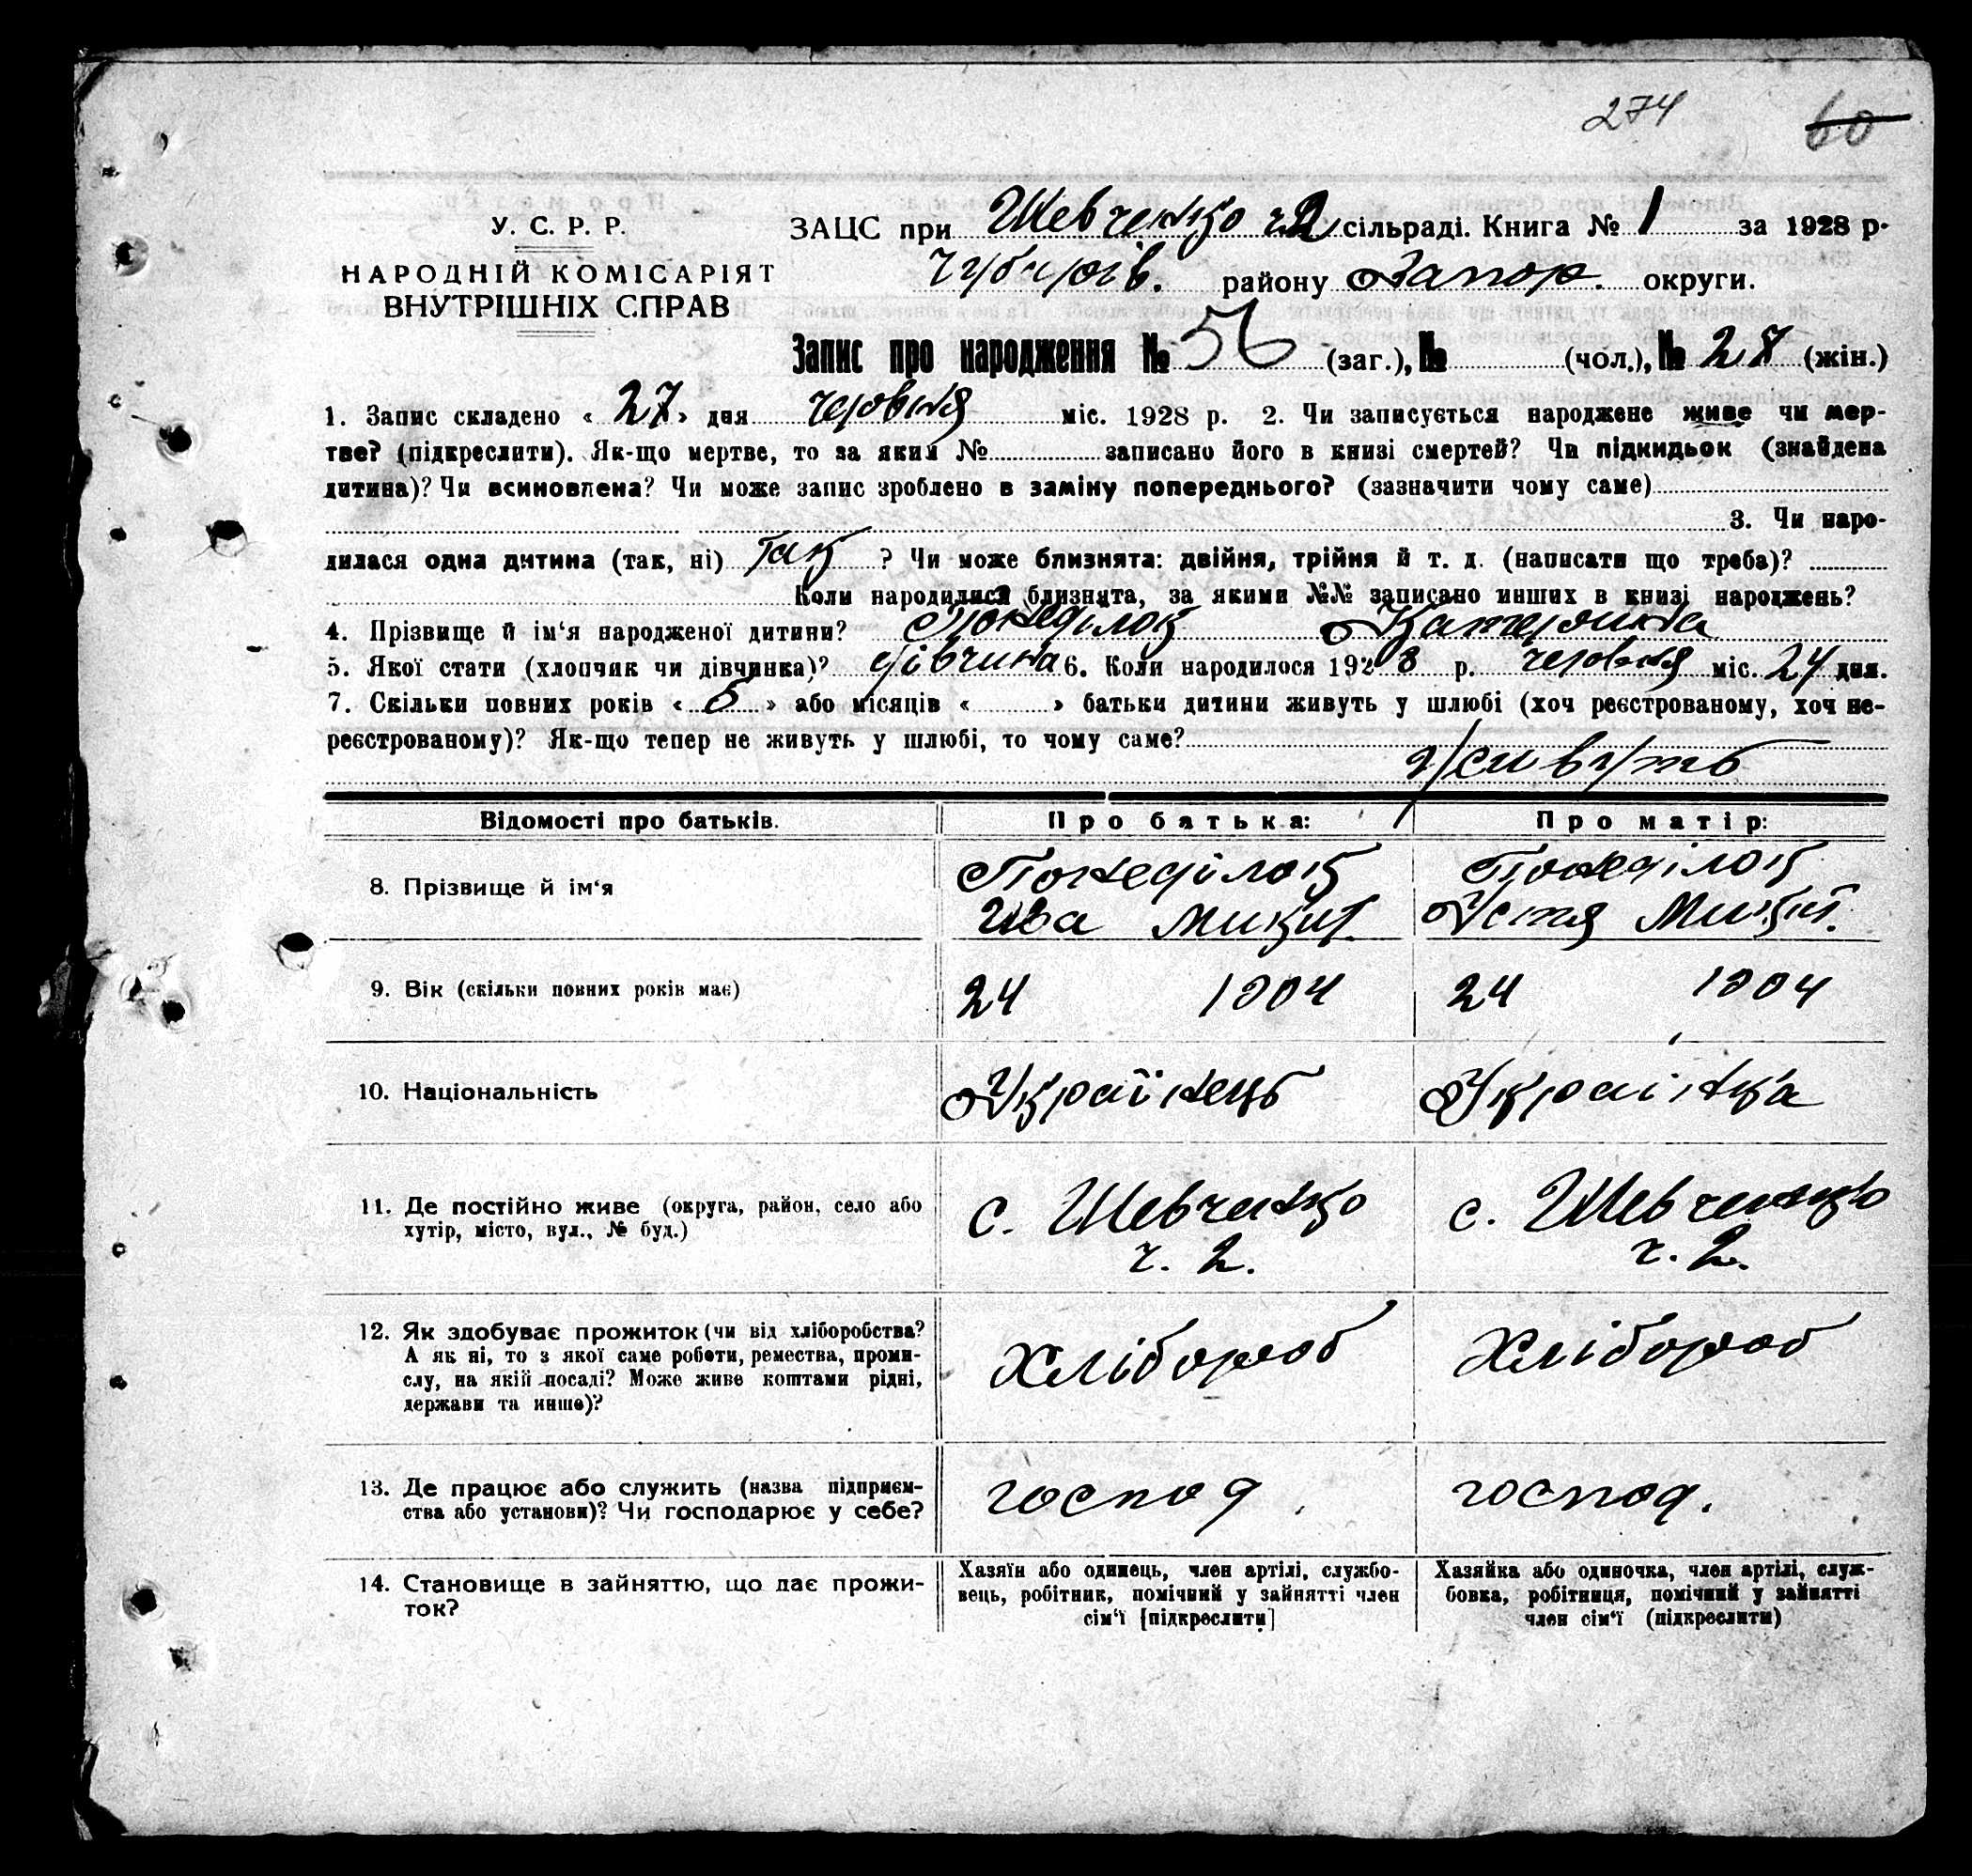 274 60
У. С. Р. Р.
НАРОДНІЙ КОМІСАРІЯТ
ВНУТРІШНІХ СПРАВ
ЗАЦС при Шевченко ч2 сільраді. Книга № 1 за 1928 р.
Чубарів. району Запор. округи.
Запис про народження № 56 (заг.), № (чол.), № 28 (жін.)
1. Запис складено « 27 » дня червня міс. 1928 р. 2. Чи записується народжене живе чи мер-
тве? (підкреслити). Як-що мертве, то за яким № записано його в книзі смертей? Чи підкидьок (знайдена
дитина)? Чи всиновлена? Чи може запис зроблено в заміну попереднього? (зазначити чому саме)
3. Чи наро-
дилася одна дитина (так, ні) так ? Чи може близнята: двійня, трійня й т. д. (написати що треба)?
Коли народилися близнята, за якими №№ записано инших в книзі народжень?
4. Прізвище й ім‘я народженої дитини? Понеділок Катерина
5. Якої стати (хлопчик чи дівчинка)? дівчина 6. Коли народилося 1928 р. червня міс. 24 дня.
7. Скільки повних років « 5 » або місяців « » батьки дитини живуть у шлюбі (хоч реєстрованому, хоч не-
реєстрованому)? Як-що тепер не живуть у шлюбі, то чому саме?
живуть
Відомості про батьків. Про батька: Про матір:
8. Прізвище й ім‘я
Понеділок Понеділок
Ива Микит. Устя Микит.
9. Вік (скільки повних років має) 24 1904 24 1904
10. Національність Українець Українка
11. Де постійно живе (округа, район, село або
хутір, місто, вул., № буд.)
с. Шевченко с. Шевченко
ч. 2. ч. 2.
12. Як здобуває прожиток (чи від хліборобства?
А як ні, то з якої саме роботи, ремества, проми-
слу, на якій посаді? Може живе коштами рідні,
держави та инше)?
Хлібороб Хлібороб
13. Де працює або служить (назва підприєм-
ства або установи)? Чи господарює у себе?
господ. господ.
14. Становище в зайняттю, що дає прожи-
ток?
Хазяїн або одинець, член артілі, службо-
вець, робітник, помічний у зайнятті член
сім‘ї [підкреслити]
Хазяйка або одиночка, член артілі, служ-
бовка, робітниця, помічний у зайнятті
член сім‘ї (підкреслити)